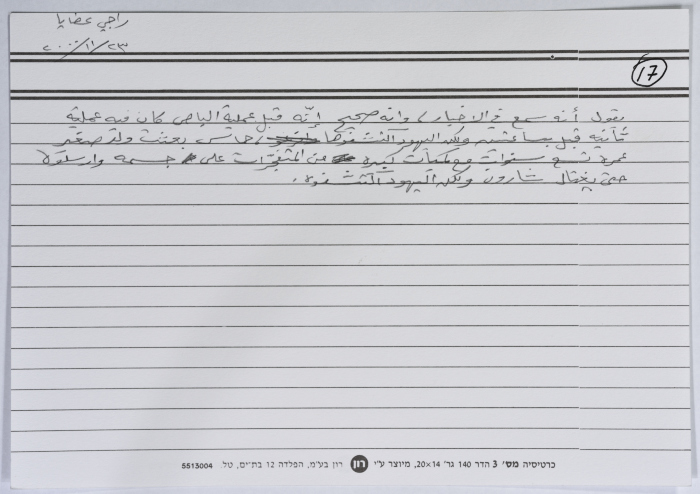 راجي عطايا
٢٣/١١/٢٠٠٠
17
يقول أنه سمع في الاخبار، وانه صحيح إنّه قبل عملية الباص كان فيه عملية
ثانية قبل بساعتين ولكن اليهود اكتشفوها، حماس بعثت ولد صغير
عمره تسع سنوات مع كميات كبيرة من المتفجرات على جسمه وارسلوه
حتى يغتال شارون ولكن اليهود اكتشفوه.
כרטיסיה מס' 3 הדר 140 גר' 14×20, מיוצר ע"י רון רון בע"מ, הפלדה 12 בת-ים, טל. 5513004